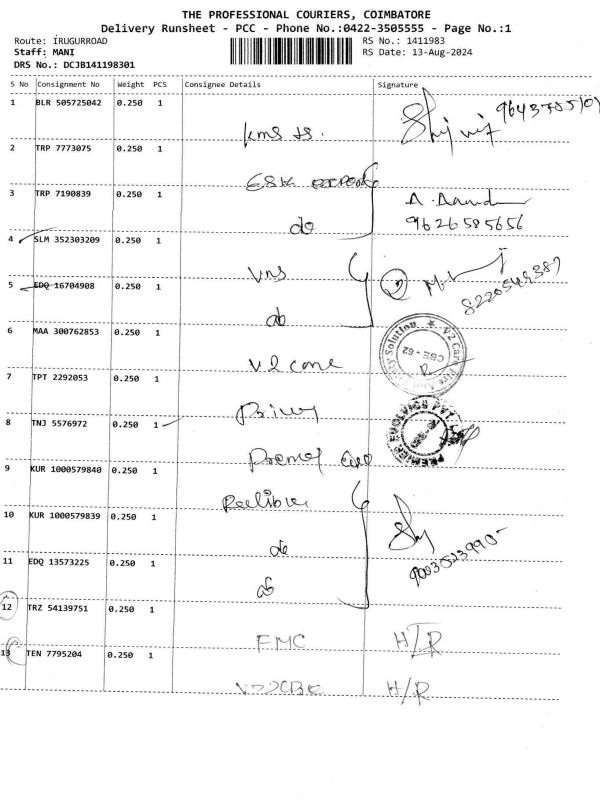 THE PROFESSIONAL COURIERS, COIMBATORE
Delivery Runsheet - PCC - Phone No.:0422-3505555 - Page No.:1
Route: IRUGURROAD RS No.: 1411983
Staff: MANI RS Date: 13-Aug-2024
DRS No.: DCJB141198301
S No Consignment No Weight PCS Consignee Details Signature
1 BLR 505725042 0.250 1
kms
2 TRP 7773075 0.250 1
ESK
3 TRP 7190839 0.250 1
do 9626585656
4 SLM 352303209 0.250 1
vns 8220549387
5 EDQ 16704908 0.250 1
do
6 MAA 300762853 0.250 1
V2 care
7 TPT 2292053 0.250 1
8 TNJ 5576972 0.250 1
9 KUR 1000579840 0.250 1
10 KUR 1000579839 0.250 1
do 9003523990
11 EDQ 13573225 0.250 1
do
12 TRZ 54139751 0.250 1
FMC H/R
13 TEN 7795204 0.250 1
H/R